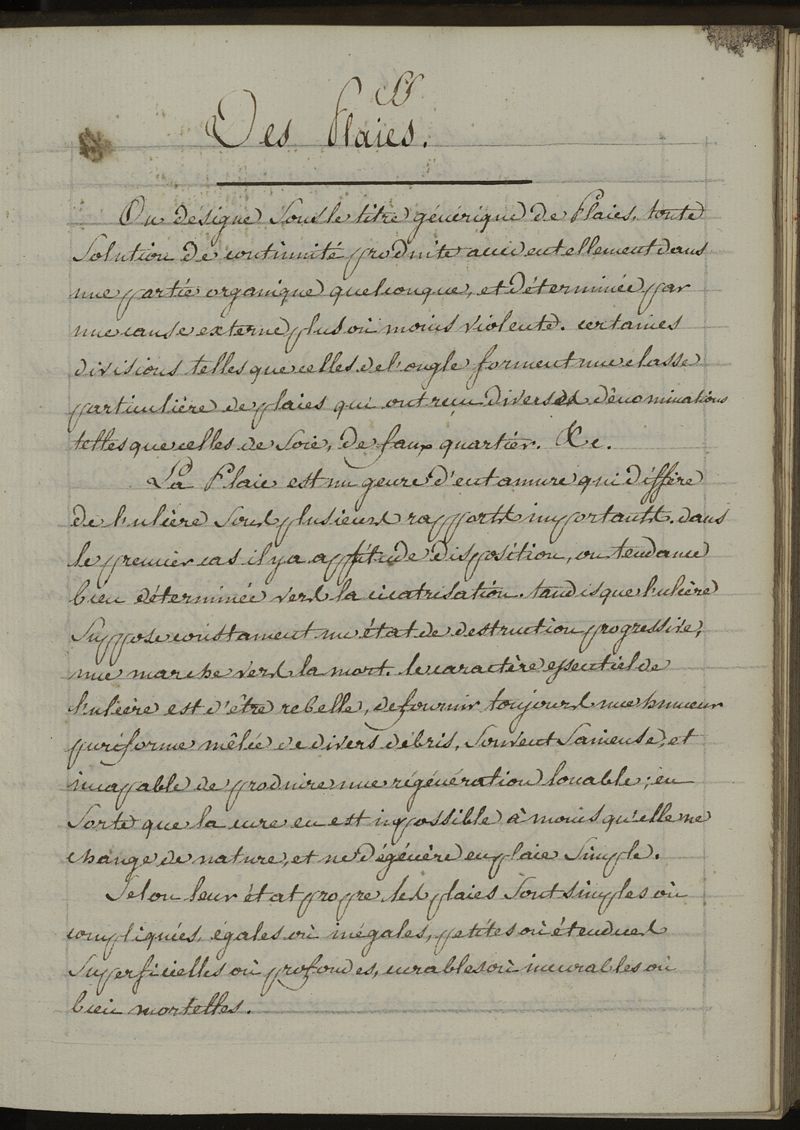 Des Plaies.
On désigne Sous le titre générique de Plaies, toute
Solution de continuité produite accidentellement dans
une partie organique quelconque, et déterminée par
une cause externe plus où moins violente. certaines
divisions telles que celles de l'ongle forment une classe
particulière de plaies qui ont reçu diverses dénominations
telles que celles de Soie, de faux quartier. &c.
La Plaie est un genre d'entamure qui diffère
de l'ulière Sous plusieurs rapports importants. dans
le premier cas il y a aptitude disposition, ou tendance
bien déterminée vers la cicatrisation. tandis que l'ulcère
Suppose constament un état de destruction progressive,
une marche vers la mort. le caractère essentiel de
l'ulcère est d'être rebelle, de fournir toujours une humeur
puriforme mêlée de divers débris, Souvent Sanieuse, et
incapable de produire une régénération louable; en
Sorte que la cure en est impossible à moins qu'elle ne
change de nature, et ne dégénère en plaie Simple.
Selon leur état propre les plaies Sont simples où
compliquées, égales où inégales, petites où étendues
Superficielles où profondes, curables où incurables où
bien mortelles.